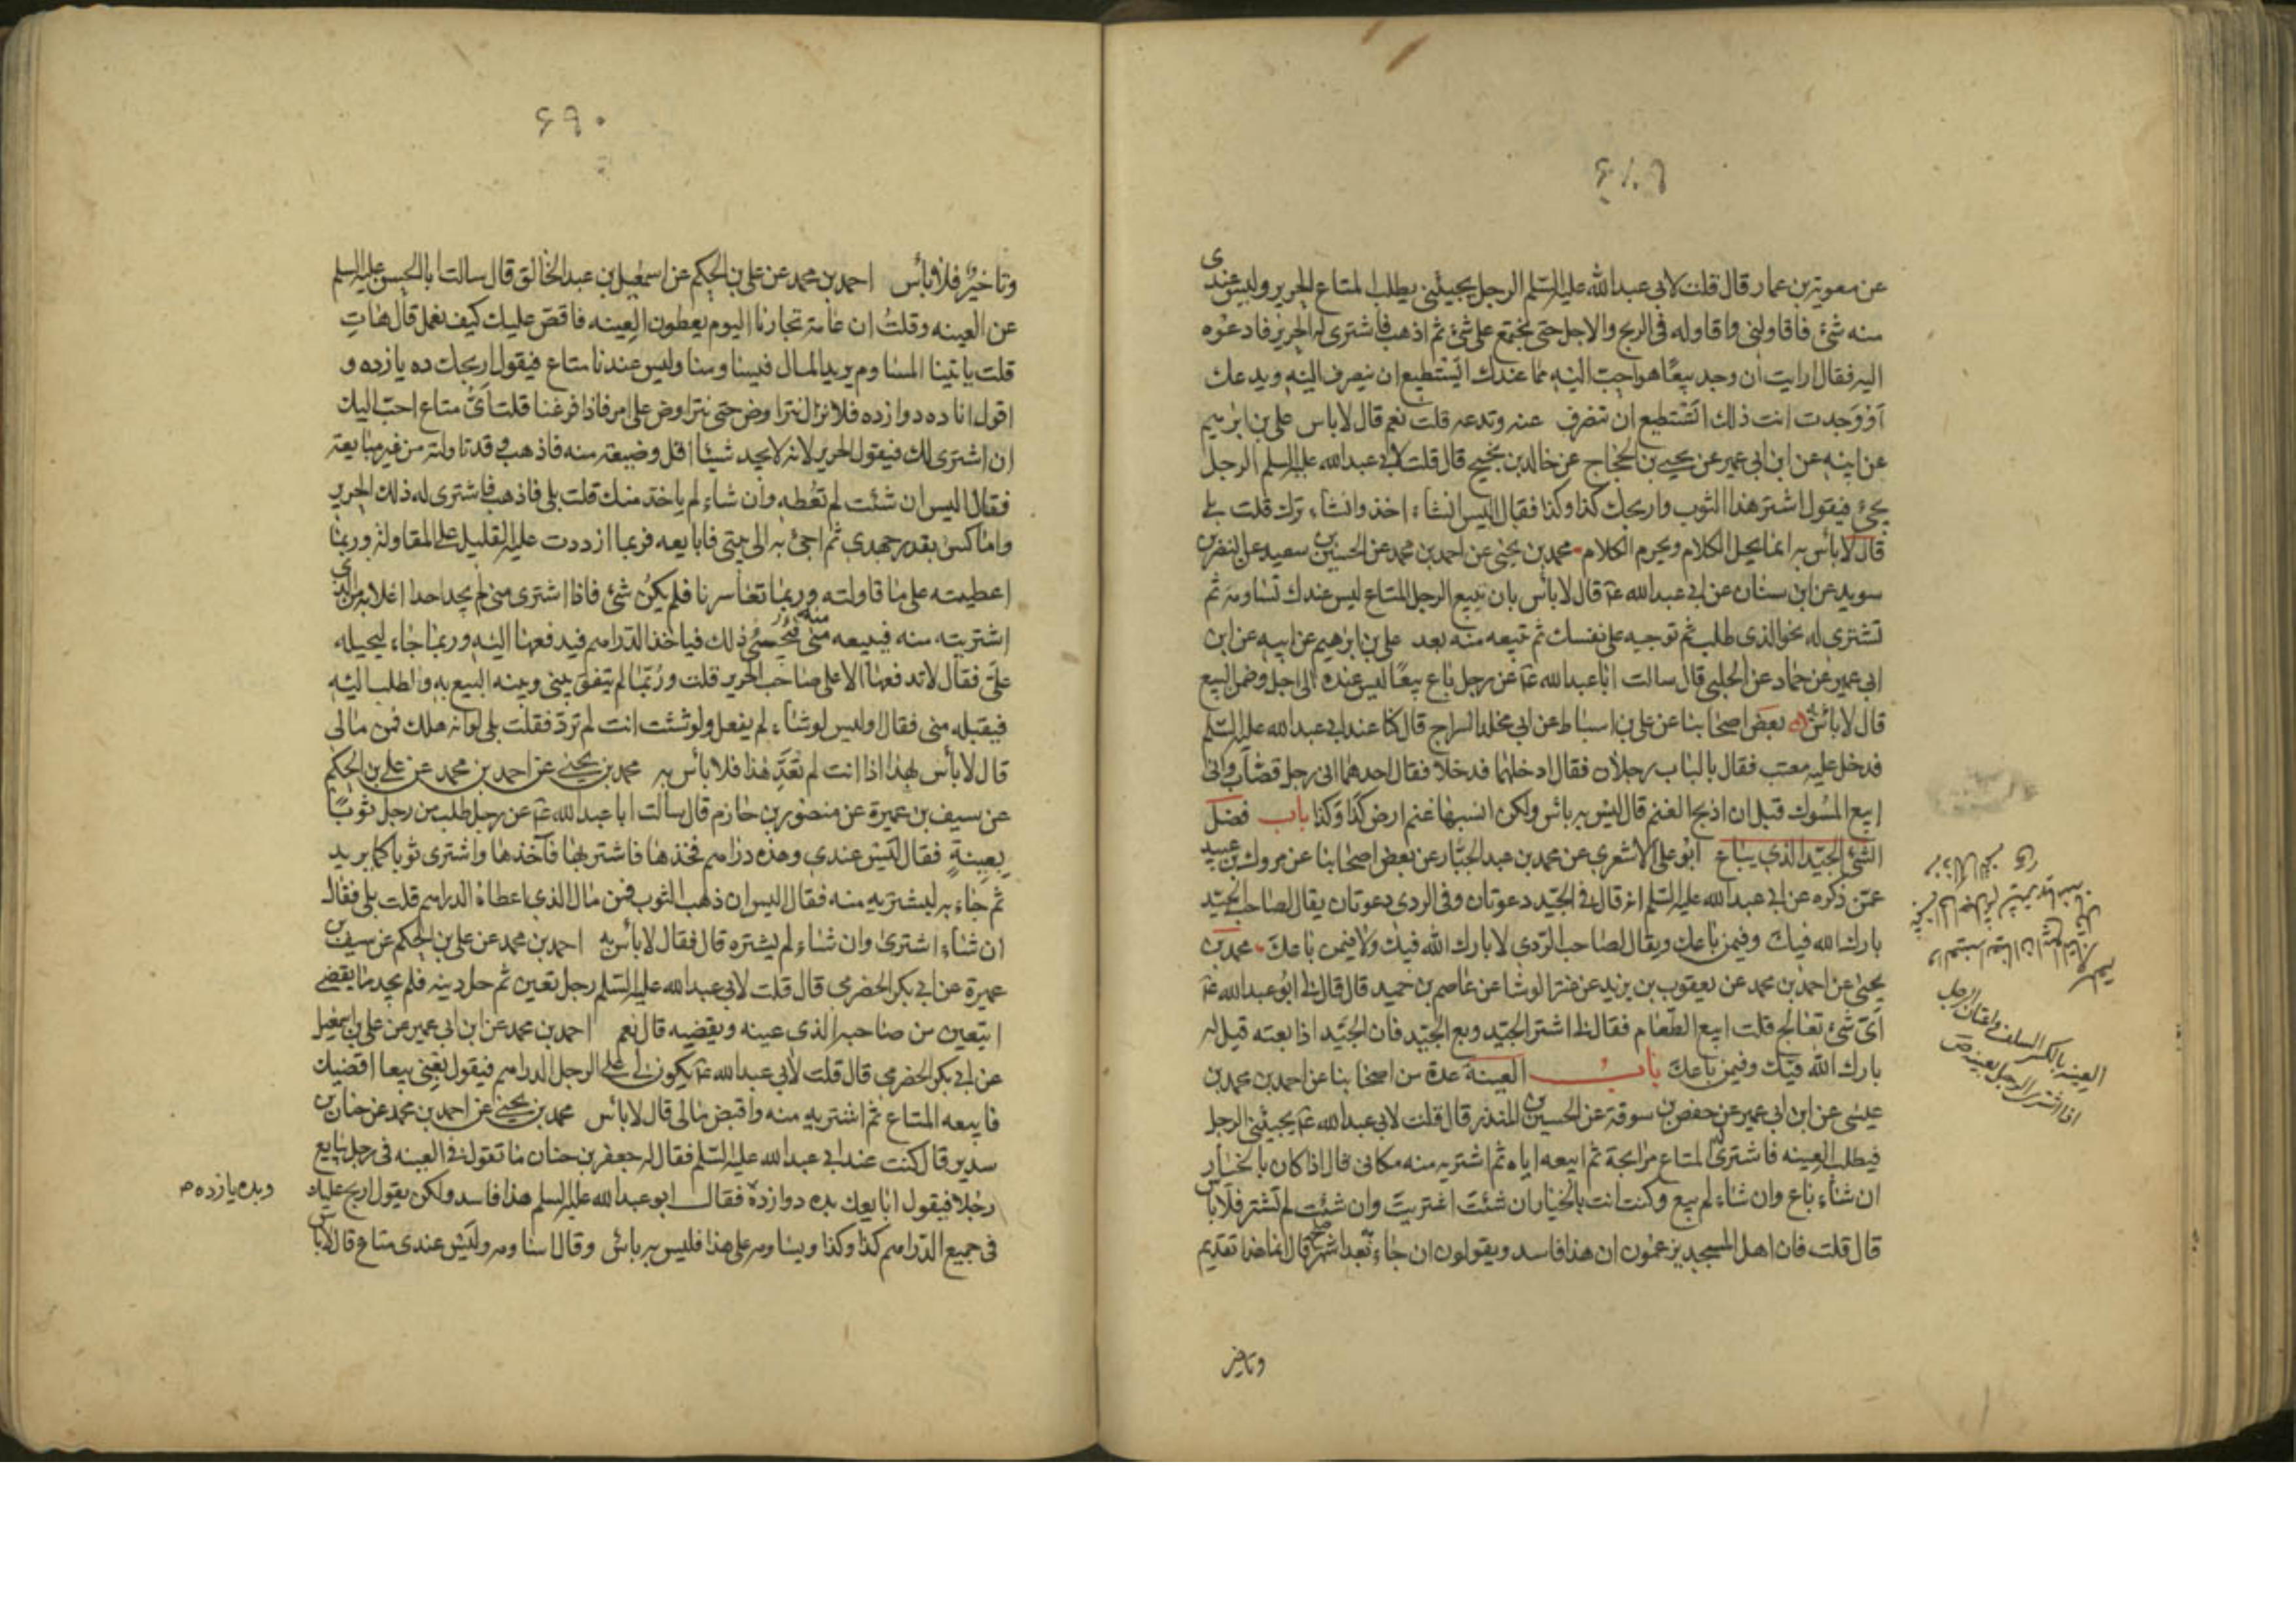 عن معوية بن عمار قال قلت لابي عبد الله عليه السلم الرجل يجيئني يطلب المتاع الحرير وليس عندى
منه شئ فاقاولنى واقاوله فى الربح والاجل حتى نجتمع على شئ ثم اذهب فاشترى له الحرير فادعوه
اليه فقال ارايت ان وجد بيعا هو احب اليه مما عندك ايستطيع ان ينصرف اليه ويدعك
او وجدت انت ذلك اتستطيع ان تنصرف عنه وتدعه قلت نعم قال لاباس على بن ابرهيم
عن ابيه عن ابن ابى عمير عن يحيى بن الحجاج عن خالد بن نجيح قال قلت لابى عبد الله عليه السلم الرجل
يجئ فيقول اشتر هذا الثوب واربحك كذا وكذا فقال اليس ان شاء اخذ وان شاء ترك قلت بلى
قال لاباس به انما يحل الكلام ويحرم الكلام محمد بن يحيى عن احمد بن محمد عن الحسين بن سعيد عن النضر بن
سويد عن ابن سنان عن ابى عبد الله ع قال لاباس بان تبيع الرجل المتاع ليس عندك تساومه ثم
تشترى له نحو الذى طلب ثم توجبه على نفسك ثم تبيعه منه بعد على بن ابرهيم عن ابيه عن ابن
ابى عمير عن حماد عن الحلبى قال سالت ابا عبد الله ع عن رجل باع بيعا ليس عنده الى اجل وضمن البيع
قال لاباس به بعض اصحابنا عن على بن اسباط عن ابى مخلد السراج قال كنا عند ابى عبد الله عليه السلم
فدخل عليه معتب فقال بالباب رجلان فقال ادخلهما فدخلا فقال احدهما انى رجل قصاب وانى
ابيع المسوك قبل ان اذبح الغنم قال ليس به باس ولكن انسبها غنم ارض كذا وكذا باب فضل
الشئ الجيد الذى يباع ابو على الاشعرى عن محمد بن عبد الجبار عن بعض اصحابنا عن مروك بن عبيد
عمن ذكره عن ابى عبد الله عليه السلم انه قال فى الجيد دعوتان وفى الردى دعوتان يقال لصاحب الجيد
بارك الله فيك وفيمن باعك ويقال لصاحب الردى لا بارك الله فيك ولا فيمن باعك محمد بن
يحيى عن احمد بن محمد عن يعقوب بن يزيد عن الوشا عن عاصم بن حميد قال قال لى ابو عبد الله ع
اى شئ تعالج قلت ابيع الطعام فقال لى اشتر الجيد وبع الجيد فان الجيد اذا بعته قيل له
بارك الله فيك وفيمن باعك باب العينة عدة من اصحابنا عن احمد بن محمد بن
عيسى عن ابن ابى عمير عن حفص بن سوقة عن الحسين بن المنذر قال قلت لابى عبد الله ع يجيئنى الرجل
فيطلب العينه فاشترى له المتاع مرابحة ثم ابيعه اياه ثم اشتريه منه مكانى قال اذا كان بالخيار
ان شاء باع وان شاء لم يبع وكنت انت بالخيار ان شئت اشتريت وان شئت لم تشتر فلاباس
قال قلت فان اهل المسجد يزعمون ان هذا فاسد ويقولون ان جاء به بعد اشهر صلح قال انما هذا تقديم
وتاخير
العينه بالكسر السلف واعتان الرجل
اذا اشترى الرجل بعينه ص
۶۹۰
وتاخير فلاباس احمد بن محمد عن على بن الحكم عن اسمعيل بن عبد الخالق قال سالت ابا الحسن عليه السلم
عن العينه وقلت ان عامة تجارنا اليوم يعطون العينه فاقص عليك كيف نعمل قال هات
قلت ياتينا المساوم يريد المال فيساومنا وليس عندنا متاع فيقول اربحك ده يازده و
اقول انا ده دوازده فلا نزال نتراوض حتى نتراوض على امر فاذا فرغنا قلت اى متاع احب اليك
ان اشترى لك فيقول الحرير لانه لا يجد شيئا اقل وضيعة منه فاذهب وقد قاولته من غير مبايعة
فقال اليس ان شئت لم تعطه وان شاء لم ياخذ منك قلت بلى فاذهب فاشترى له ذلك الحرير
واماكس بقدر جهدى ثم اجئ به الى بيتى فابايعه فربما ازددت عليه القليل على المقاولة وربما
اعطيته على ما قاولته وربما تعاسرنا فلم يكن شئ فاذا اشترى منى لم يجد احدا اغلا به من الذى
اشتريته منه فيبيعه منه فيجئ ذلك فياخذ الدراهم فيدفعها اليه وربما جاء ليحيله
على فقال لا تدفعها الا على صاحب الحرير قلت وربما لم يتفق بينى وبينه البيع به واطلب اليه
فيقبله منى فقال او ليس لو شاء لم يفعل ولو شئت انت لم ترد فقلت بلى لو انه هلك فمن مالى
قال لاباس بهذا اذا انت لم تعد هذا فلاباس به محمد بن يحيى عن احمد بن محمد عن على بن الحكم
عن سيف بن عميرة عن منصور بن حازم قال سالت ابا عبد الله ع عن رجل طلب من رجل ثوبا
بعينة فقال ليس عندى وهذه دراهم فخذها فاشتر بها فاخذها واشترى ثوبا كما يريد
ثم جاء به ليشتريه منه فقال اليس ان ذهب الثوب فمن مال الذى اعطاه الدراهم قلت بلى فقال
ان شاء اشترى وان شاء لم يشتره قال فقال لاباس به احمد بن محمد عن على بن الحكم عن سيف بن
عميرة عن ابى بكر الحضرمى قال قلت لابى عبد الله عليه السلم رجل تعين ثم حل دينه فلم يجد ما يقضى
ايتعين من صاحبه الذى عينه ويقضيه قال نعم احمد بن محمد عن ابن ابى عمير عن على بن اسمعيل
عن ابى بكر الحضرمى قال قلت لابى عبد الله ع يكون لى على الرجل الدراهم فيقول بعنى بيعا اقضيك
فابيعه المتاع ثم اشتريه منه واقبض مالى قال لاباس محمد بن يحيى عن احمد بن محمد عن حنان بن
سدير قال كنت عند ابى عبد الله عليه السلم فقال له جعفر بن حنان ما تقول فى العينه فى رجل يبايع
رجلا فيقول ابايعك بده دوازده فقال ابو عبد الله عليه السلم هذا فاسد ولكن يقول اربح عليك
وبده يازده
فى جميع الدراهم كذا وكذا ويساومه على هذا فليس به باس وقال اساومه وليس عندى متاع قال لاباس